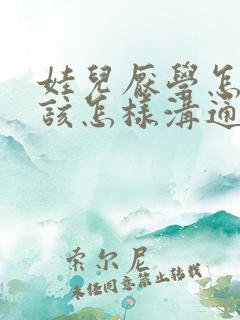 娃兒厭學怎
該怎樣溝通
索尔尼
未经同意禁止转载